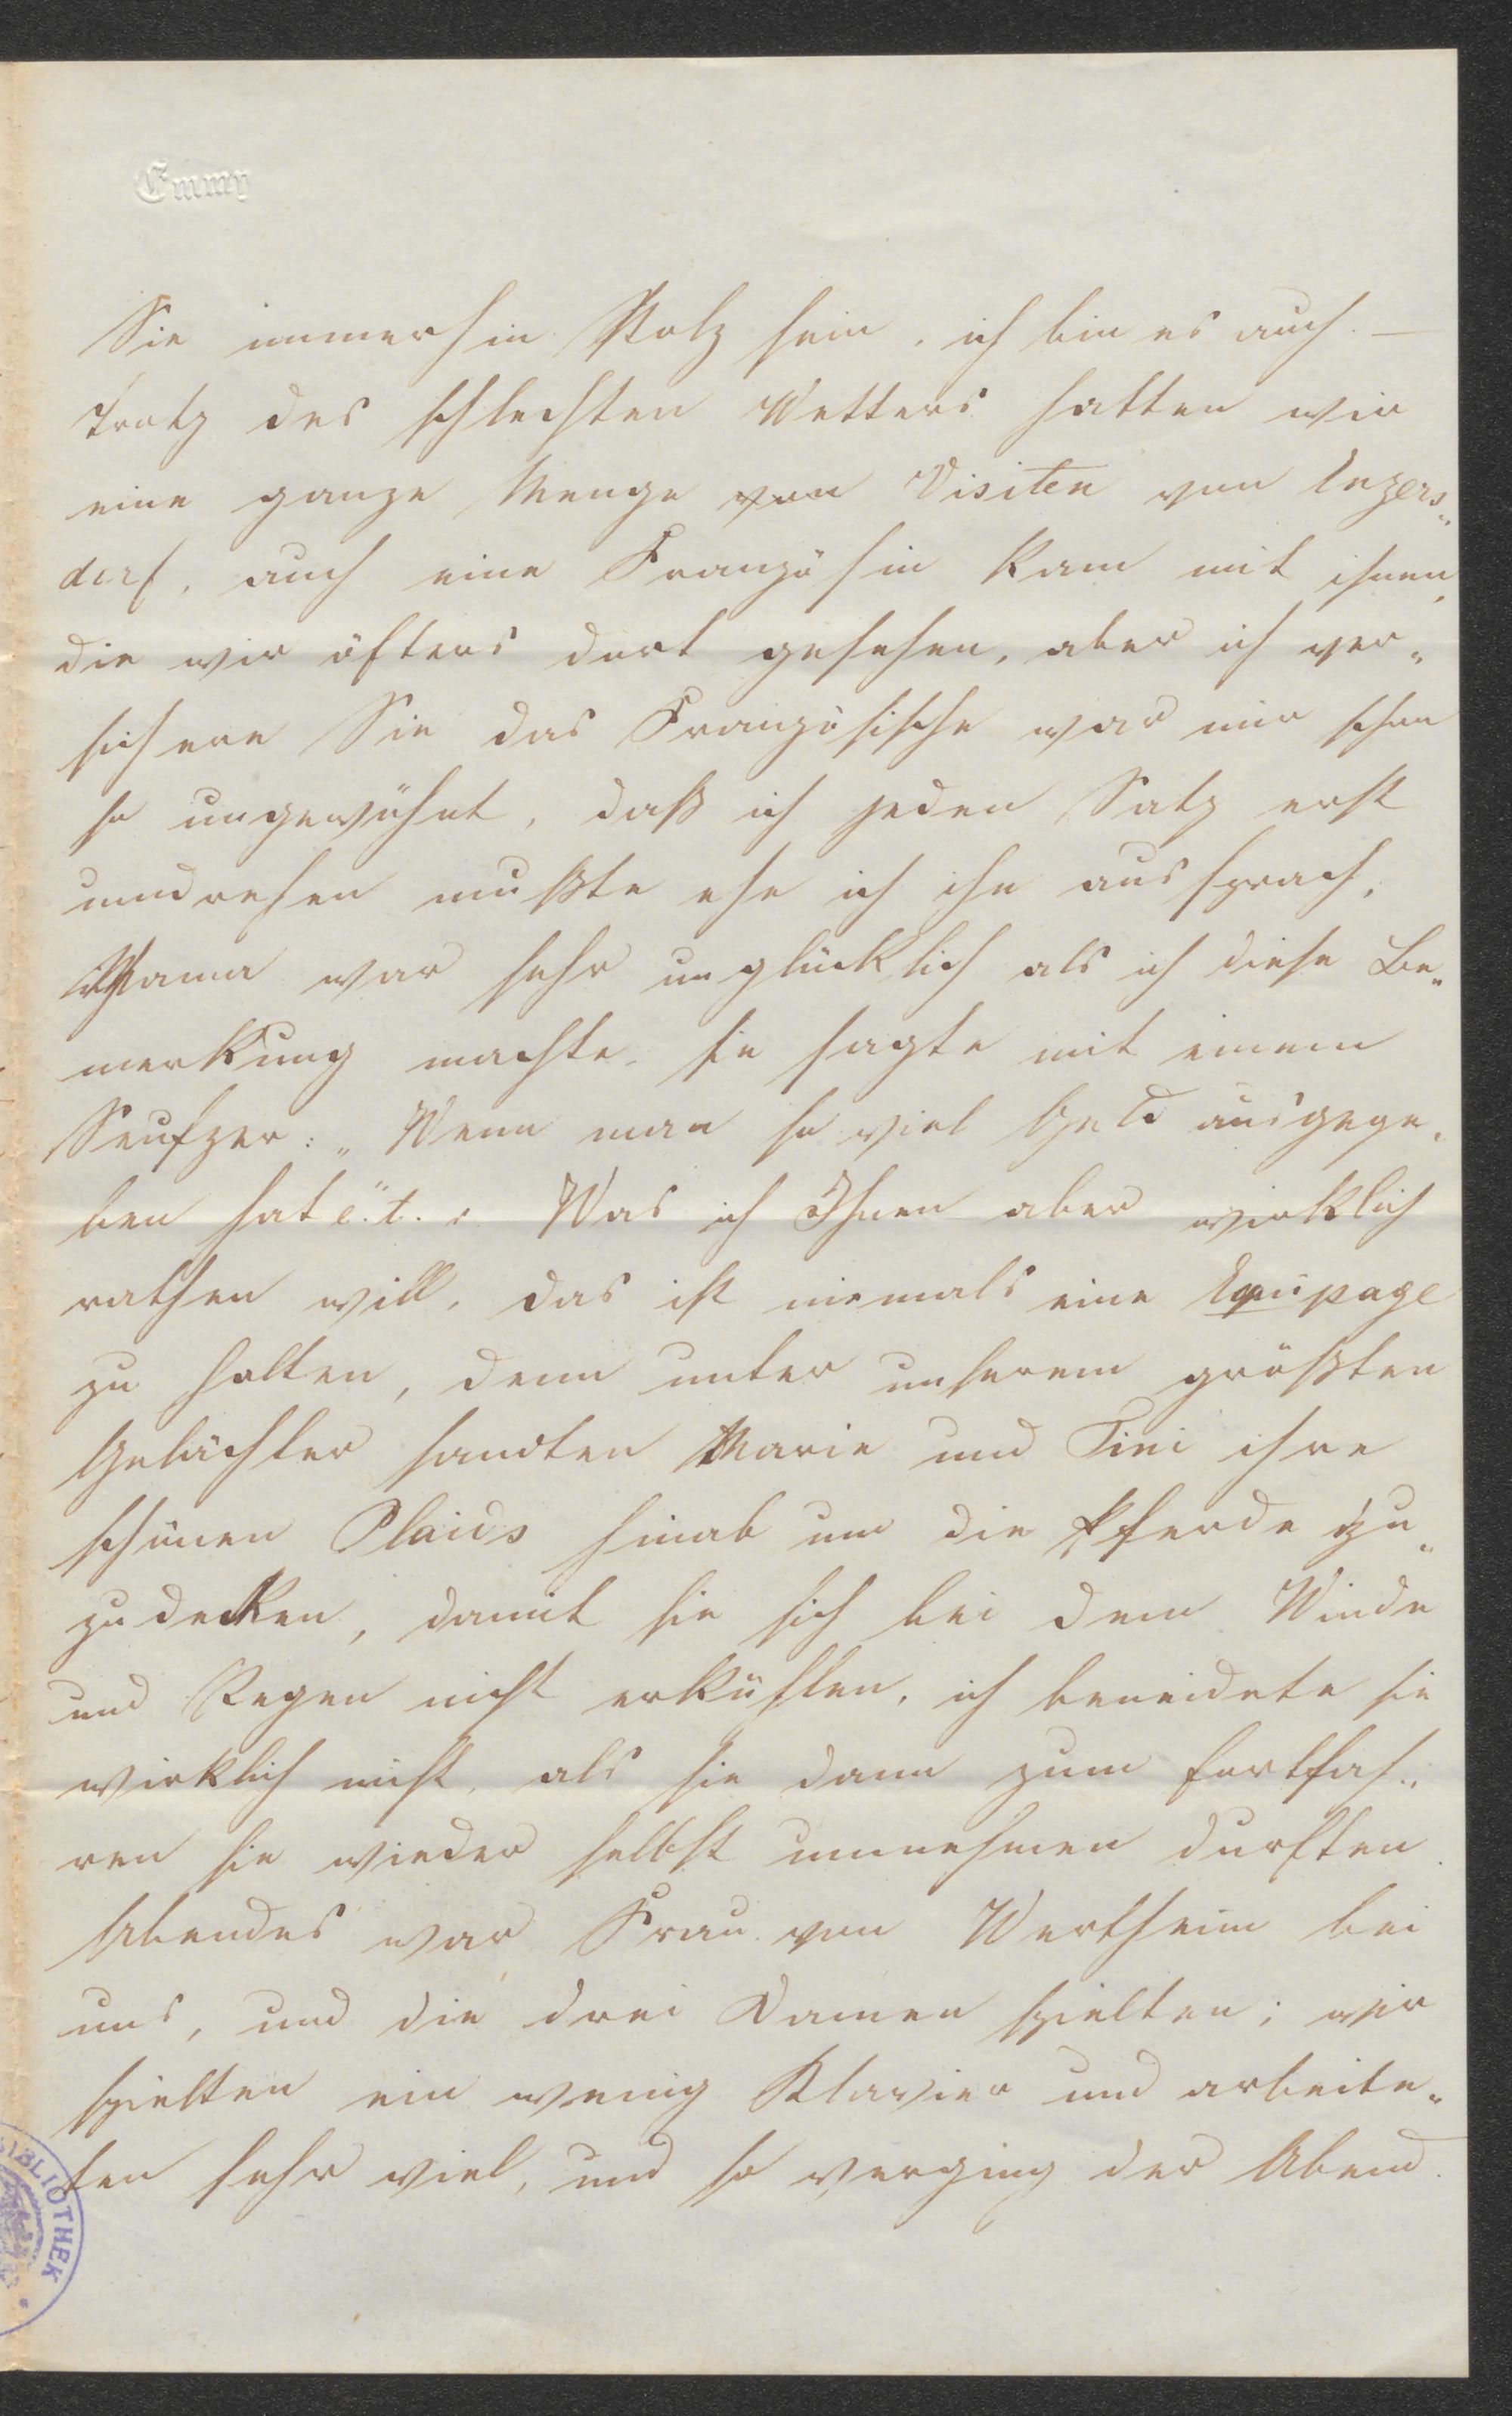 Emmy
Sie immerhin Stolz sein, ich bin es auch. —
Trotz des schlechten Wetters hatten wir
eine ganze Menge von Visiten von Inzers„
dorf, auch eine Französin kam mit ihnen,
die wir öfters dort gesehen, aber ich ver„
sichere Sie das Französische war mir schon
so ungewöhnt, daß ich jeden Satz erst
umdrehen mußte ehe ich ihn aussprach,
Mama war sehr unglücklich als ich diese Be„
merkung machte, sie sagte mit einem
Seufzer: „Wenn man so viel Geld ausgege„
ben hat e.t.c. Was ich Ihnen aber wirklich
rathen will, das ist niemals eine Equipage
zu halten, denn unter unserem größten
Gelächter sandten Marie und Tini ihre
schönen Plaids hinab um die Pferde zu„
zudecken, damit sie sich bei dem Winde
und Regen nicht erkühlen, ich beneidete sie
wirklich nicht, als sie dann zum fortfah„
ren sie wieder selbst umnehmen durften.
Abendes war Frau von Wertheim bei
uns, und die drei Damen spielten; wir
spielten ein wenig Klavier und arbeite„
ten sehr viel, und so verging der Abend.
BIBLIOTHEK